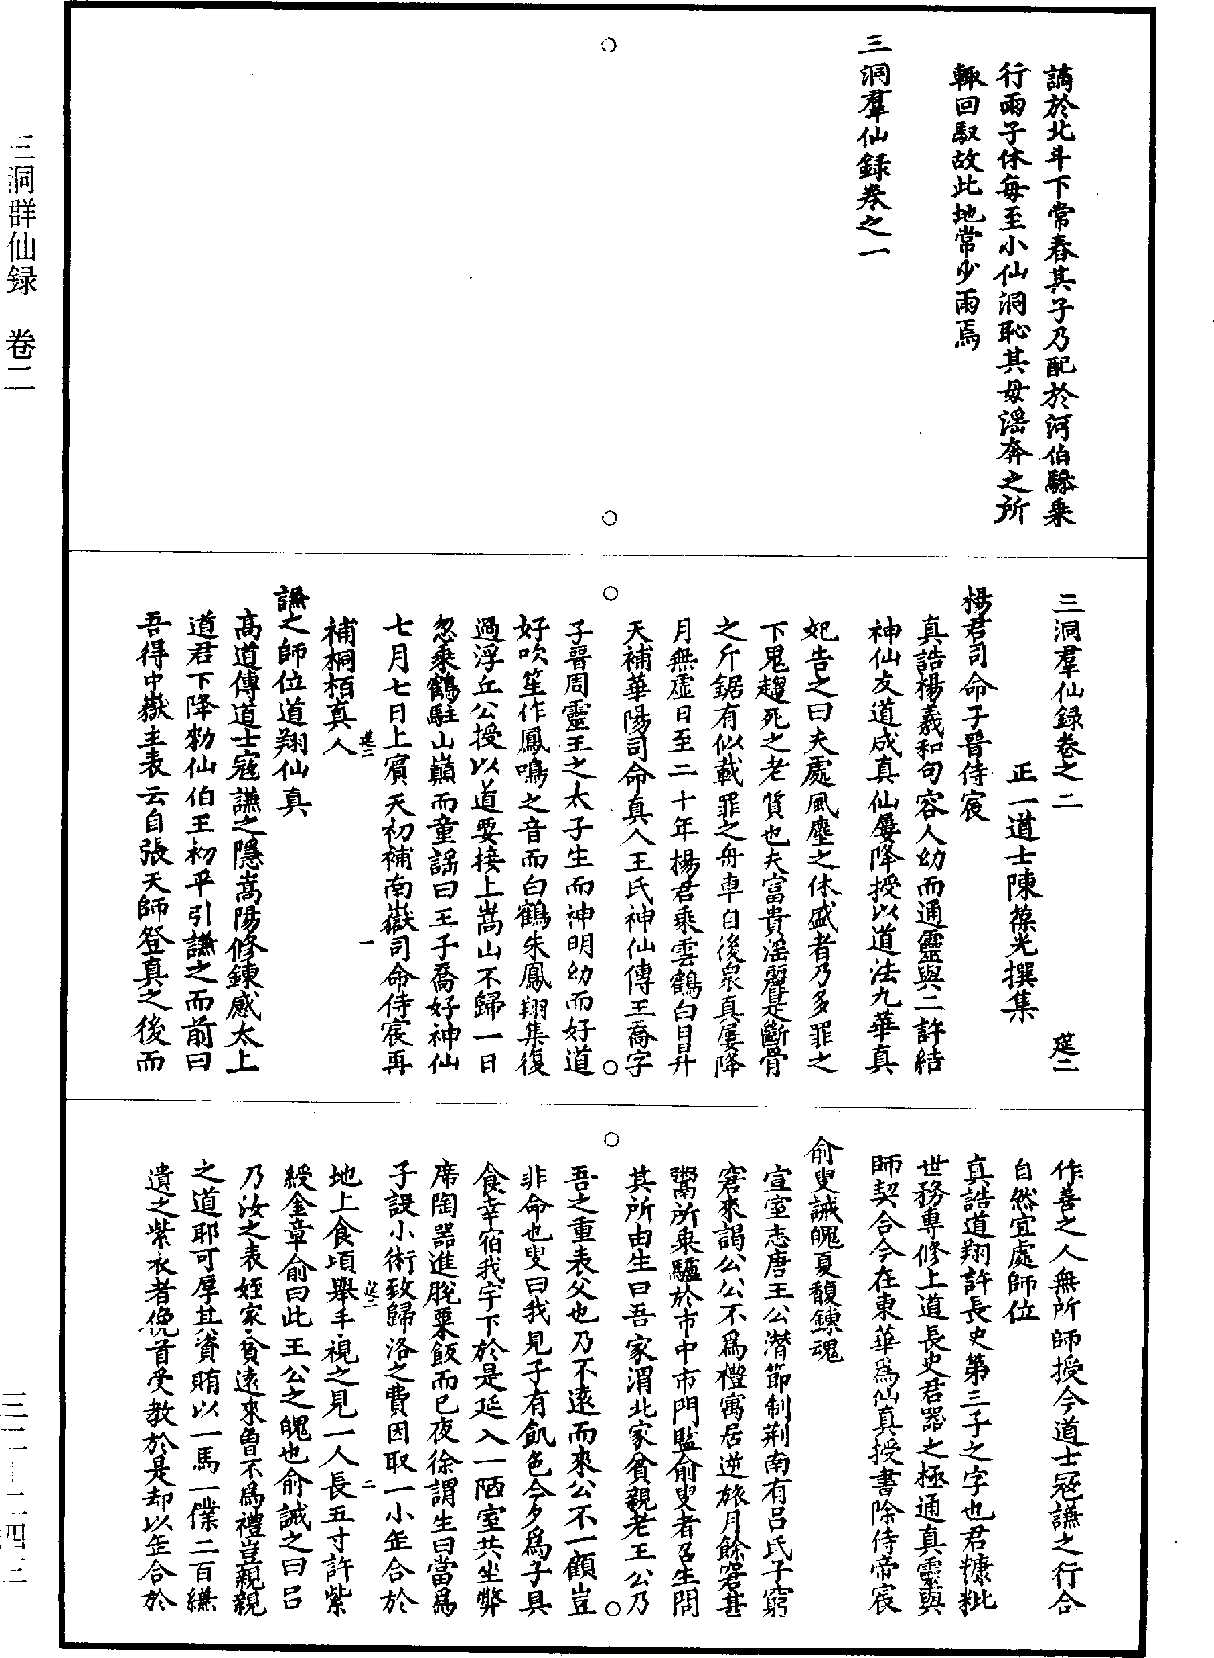 三洞群仙録　卷二
謫於北斗下常春其子乃配於河伯驂乘
行雨子休每至小仙洞恥其母淫奔之所
輙回馭故此地常少雨焉
三洞羣仙録卷之一
三洞羣仙録卷之二　筵二
正一道士陳葆光撰集
楊君司命子晉侍宸
真誥楊羲和句容人幼而通靈與二許結
神仙友道成真仙屢降授以道法九華真
妃告之曰夫處風塵之休盛者乃多罪之
下鬼趨死之老質也夫富貴淫麗是斷骨
之斤鋸有似載罪之舟車自後衆真屢降
月無虛日至二十年楊君乘雲鶴白日昇
天補華陽司命真人王氏神仙傳王喬字
子晉周靈王之太子生而神明幼而好道
好吹笙作鳳鳴之音而白鶴朱鳳翔集復
過浮丘公授以道要接上嵩山不歸一日
忽乘鶴駐山巔而童謡曰王子喬好神仙
七月七日上賓天初補南嶽司命侍宸再
筵二　一
補桐栢真人
謙之師位道翔仙真
高道傳道士寇謙之隱嵩陽修鍊感太上
道君下降勑仙伯王初平引謙之而前曰
吾得中嶽主表云自張天師登真之後而
作善之人無所師授今道士寇謙之行合
自然宜處師位
真誥道翔許長史第三子之字也君糠粃
世務專修上道長史君器之極通真靈與
師契合今在東華爲仙真授書除侍帝宸
俞叟誡魄夏馥鍊魂
宣室志唐王公潜節制荆南有吕氏子窮
窘來謁公公不爲禮寓居逆旅月餘窘甚
鬻所乘驢於市中市門監俞叟者召生問
其所由生曰吾家渭北家貧親老王公乃
吾之重表父也乃不遠而來公不一顧豈
非命也叟曰我見子有飢色今夕爲子具
食幸宿我宇下於是延入一陋室共坐弊
席陶器進脫粟飯而已夜徐謂生曰當爲
子設小術致歸洛之費因取一小缶合於
筵二　二
地上食頃舉手視之見一人長五寸許紫
綬金章俞曰此王公之魄也俞誡之曰吕
乃汝之表姪家貧遠來曾不爲禮豈親親
之道耶可厚其資賄以一馬一僕二百縑
遺之紫衣者俛首受教於是却以缶合於
三二—二四二